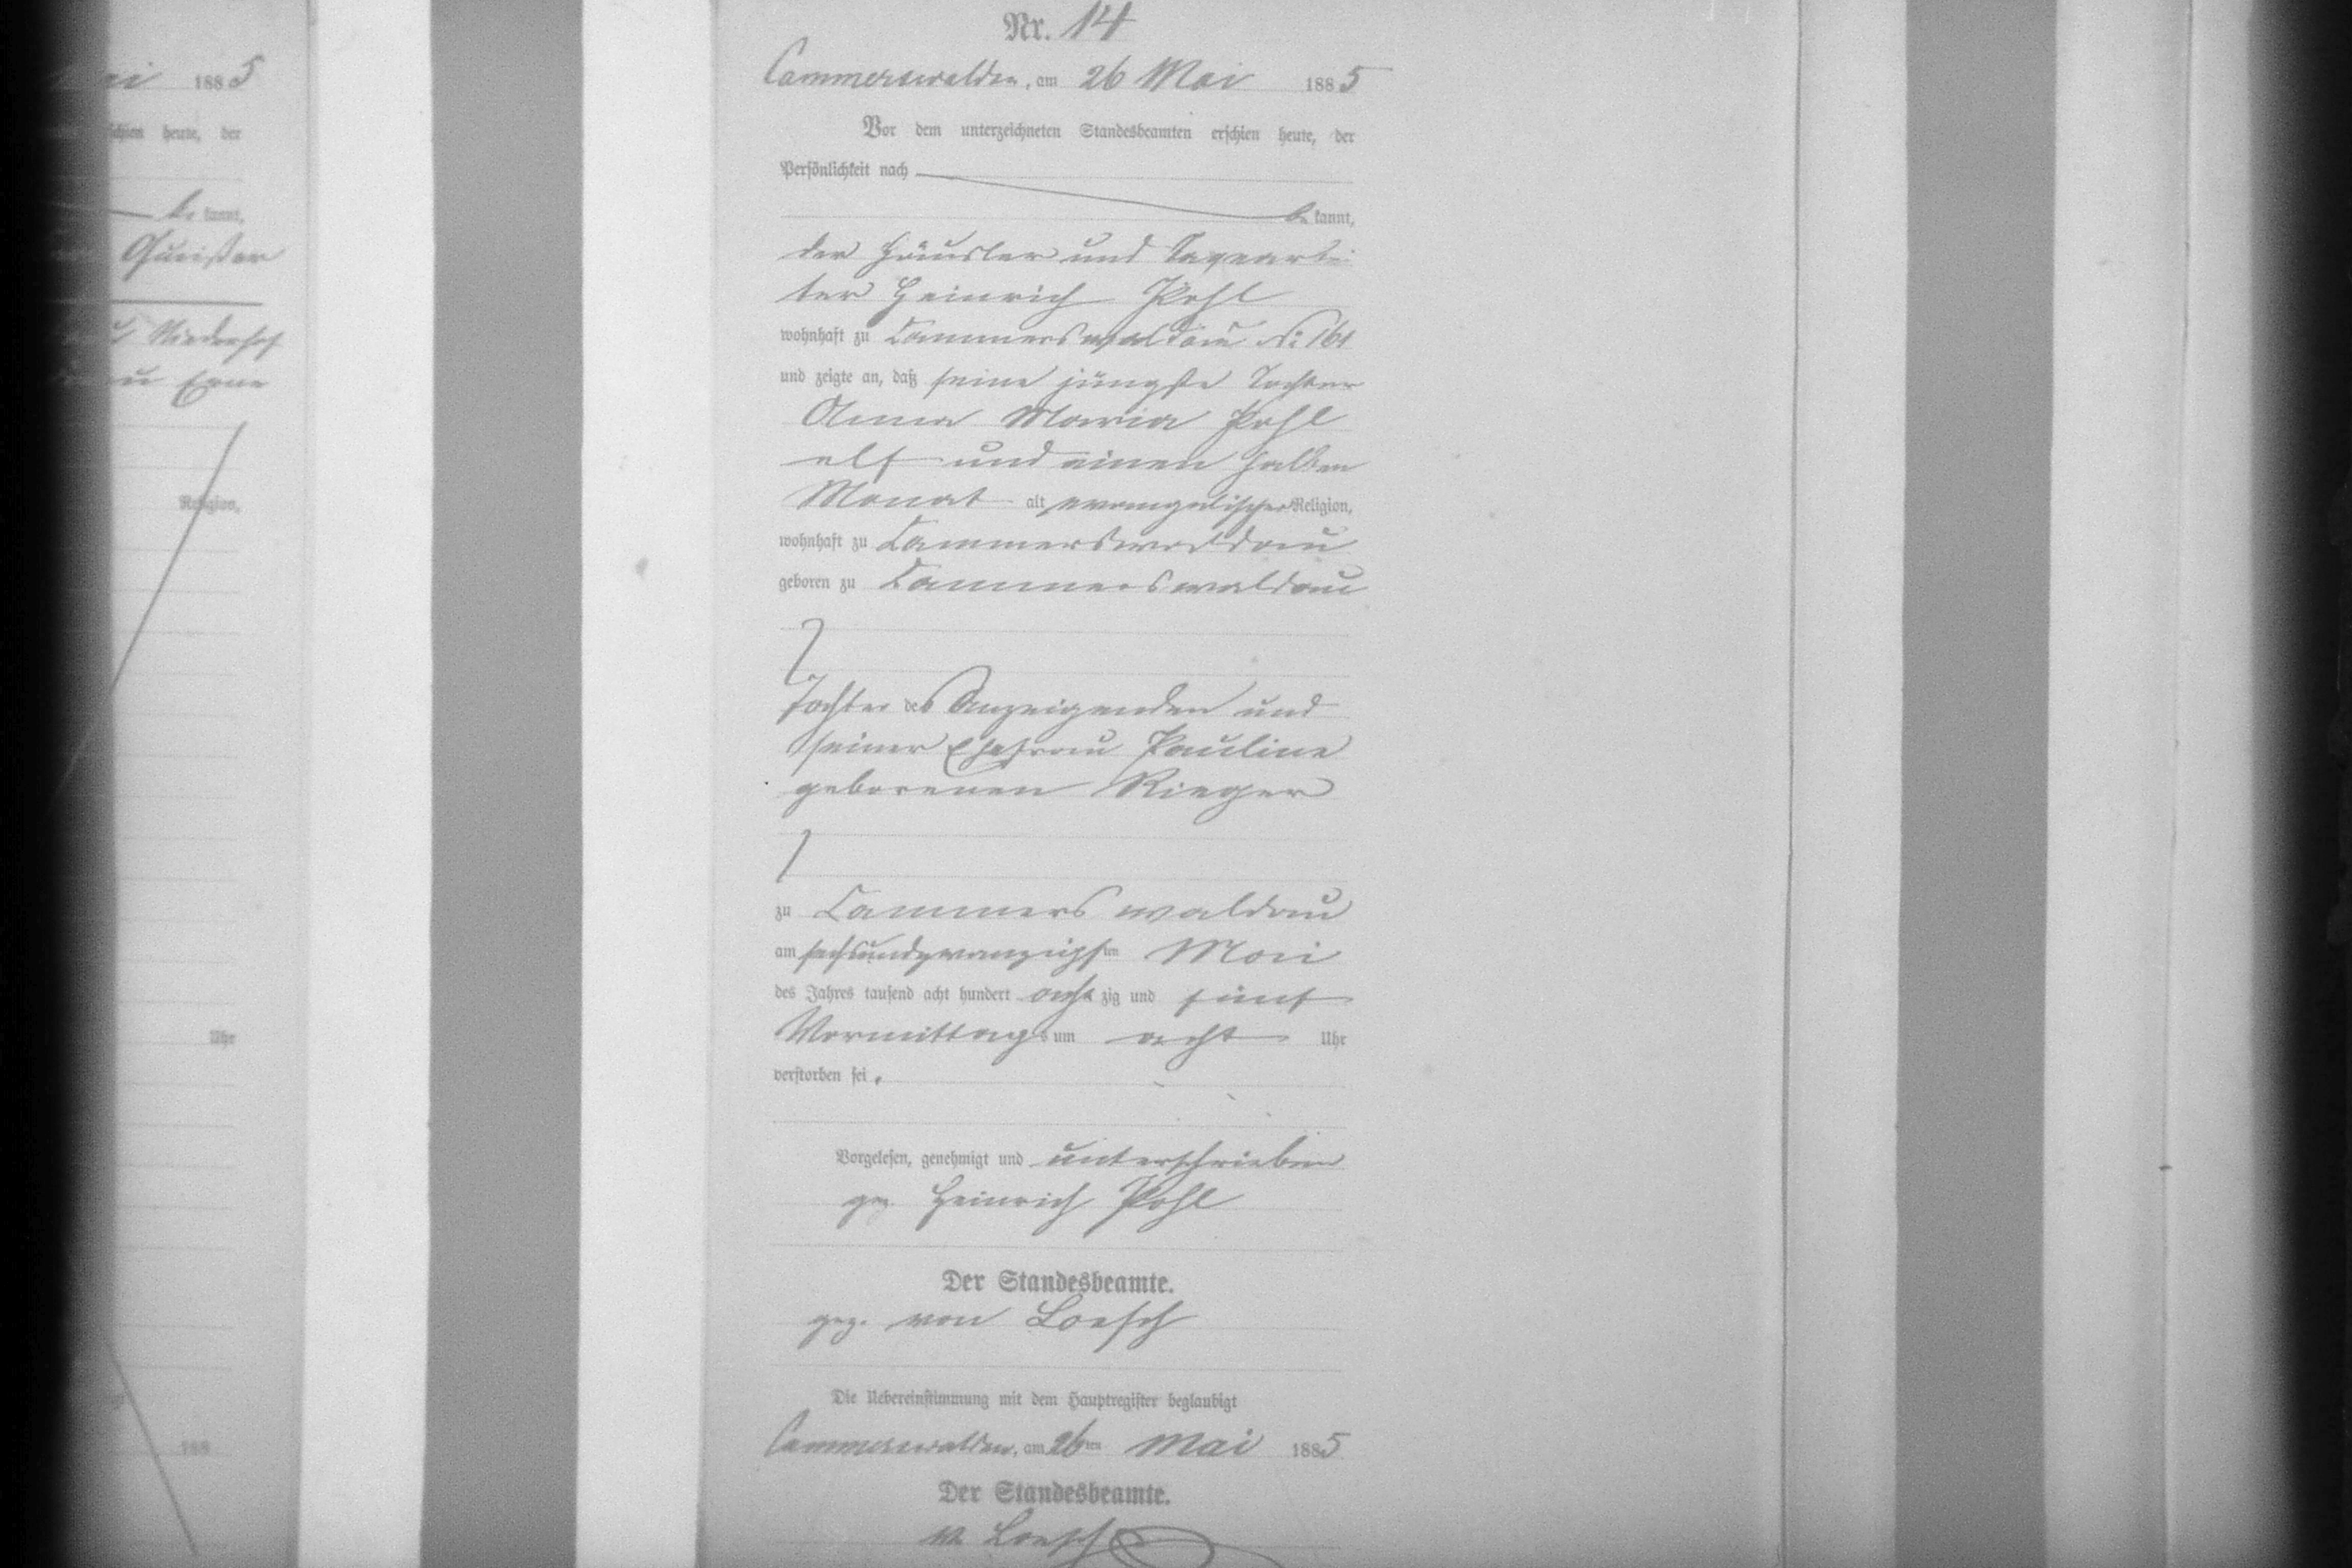 ai 1885
schien heute, der
be kannt,
Religion,
Uhr
188
Nr. 14
Cammerswaldau, am 26 Mai 1885
Vor dem unterzeichneten Standesbeamten erschien heute, der
Persönlichkeit nach
be kannt,
der Häusler und Tagearbei
ter Heinrich Pohl
wohnhaft zu Cammerswaldau No 161
und zeigte an, daß seine jüngste Tochter
Anna Maria Pohl
elf und einen halben
Monat alt, evangelischer Religion,
wohnhaft zu Cammerswaldau
geboren zu Cammerswaldau
Tochter des Anzeigenden und
seiner Ehefrau Pauline
geborenen Rieger
zu Cammerswaldau
am sechsundzwanzigsten Mai
des Jahres tausend acht hundert acht zig und fünf
Vormittags um acht Uhr
verstorben sei.
Vorgelesen, genehmigt und unterschrieben
gez. Heinrich Pohl
Der Standesbeamte.
gez. von Loesch
Die Uebereinstimmung mit dem Hauptregister beglaubigt
Cammerswaldau, am 26ten Mai 1885
Der Standesbeamte.
v. Loesch